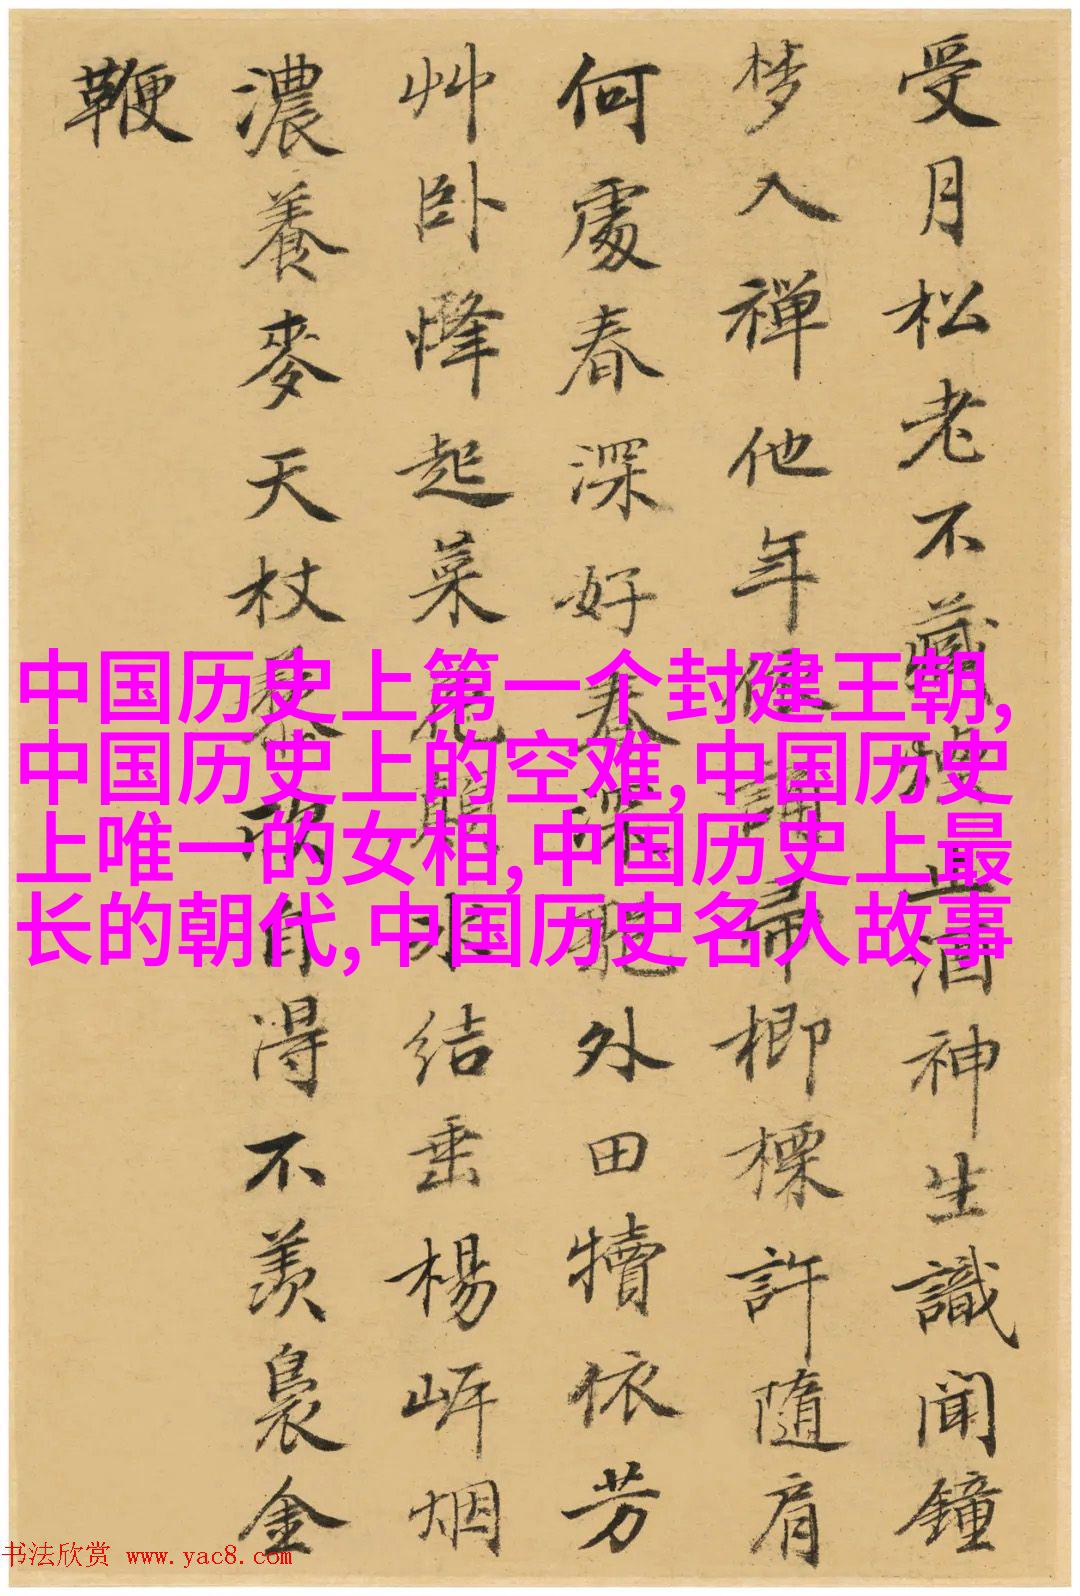 受月松老不藏止酒神生識聞鐘
梦入禅他年楖標許隨肩
何處春深好春深外田犢依芳
艸卧烽起菜花顛水结垂楊岍烟
濃養麥天杖藜歌自得不羨裊金
鞭
中国历史上第一个封建王朝,
中国历史上的空难,中国历史
上唯一的女相,中国历史上最
长的朝代,中国历史名人故事
书法欣赏 www.yac8.com